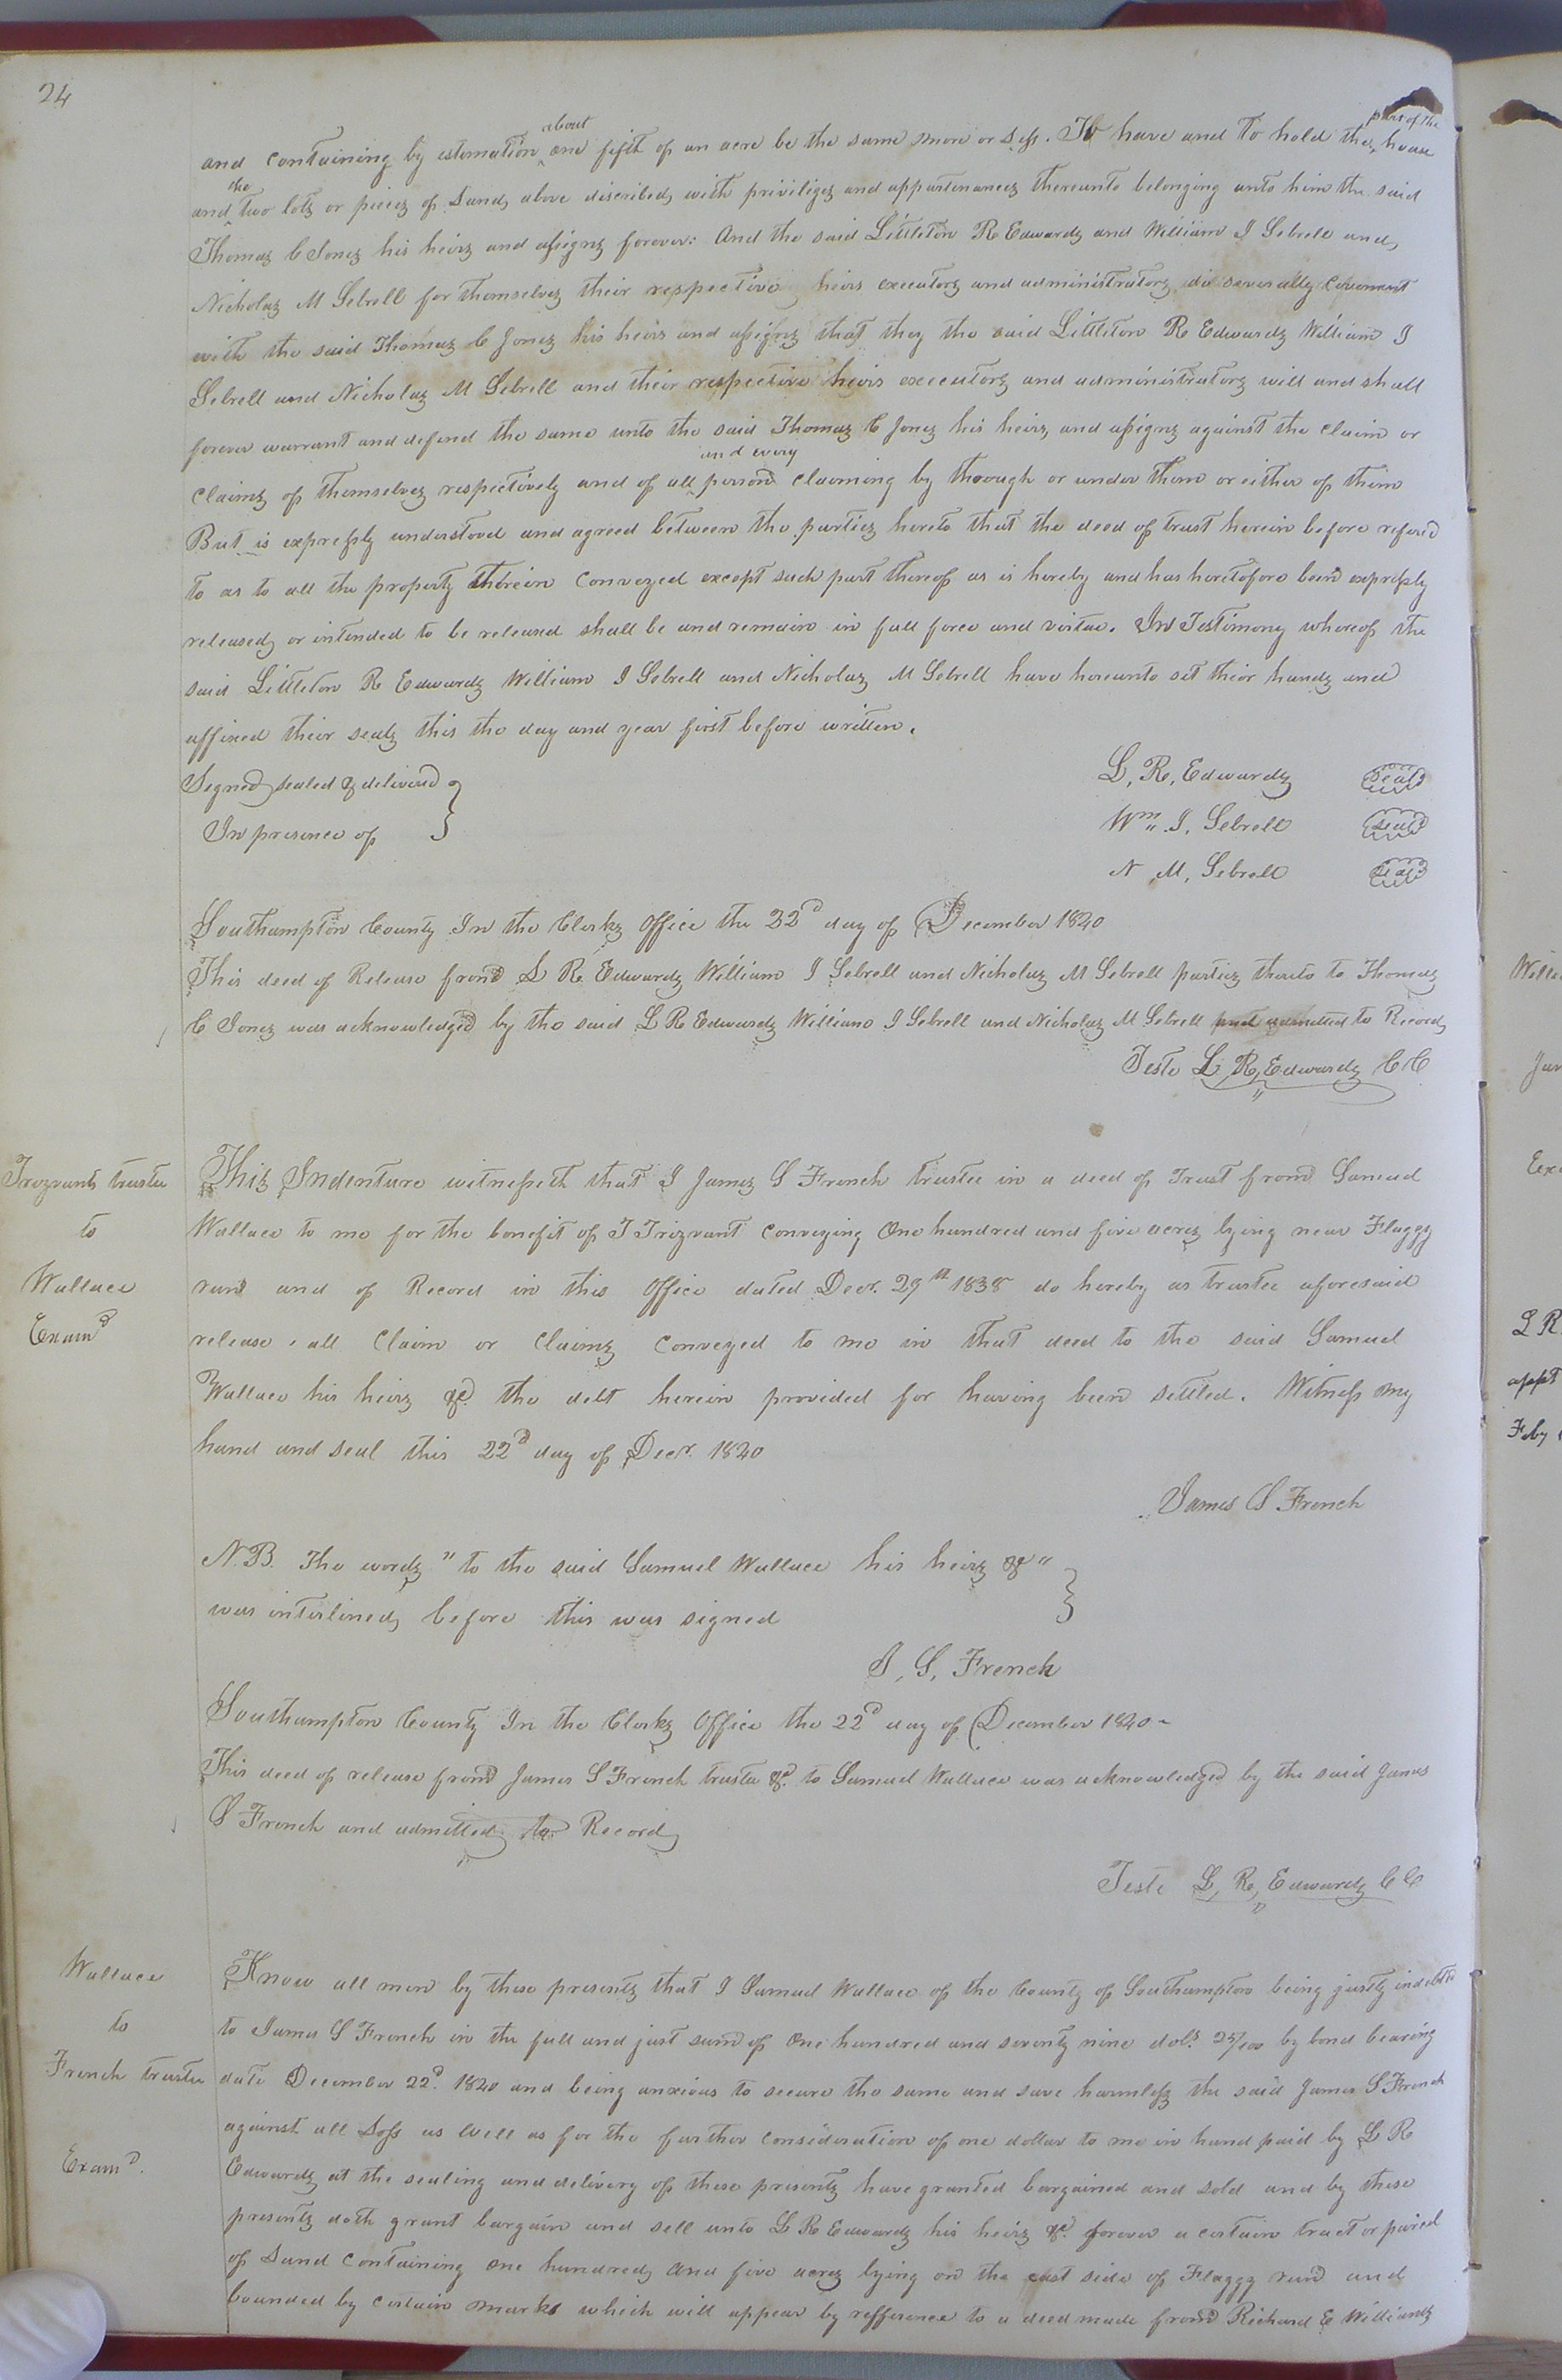 24
and containing by estimation about one fifth of an acre be the same more or Less. To have and To hold the part of the house
and the two lots or pieces of Land, above discribed, with priviliges and appurtinances thereunto belonging unto him the said
Thomas C Jones his heirs and assigns forever: And the said Littleton R Edwards and William I Sebrell and,
Nicholas M Sebrell for themselves their respective heirs executors and administrators, do severally Covenant
with the said Thomas C Jones his heirs and assigns that they the said Littleton R Edwards William I
Sebrell and Nicholas M Sebrell and their respective heirs executors and administrators will and shall
forever warrant and defend the same unto the said Thomas C Jones his heirs, and assigns against the claim or
claims of themselves respectively and of all and every person claiming by through or under them or either of them
But is expressly understood and agreed between the parties hereto that the deed of trust herein before refered
to as to all the property therein Conveyed except such part thereof as is hereby and has heretofore been expressly
released, or intended to be released shall be and remain in full force and virtue. In Testimony whereof the
said Littleton R Edwards William I Sebrell and Nicholas M Sebrell have hereunto set their hands and
affixed their seals this the day and year first before written.
Signed, sealed & delivered L, R, Edwards Seal
In presence of Wm. I, Sebrell Seal
N, M, Sebrell Seal
Southampton County In the Clerks Office the 22d day of December 1840
This deed of Release from L R Edwards William I Sebrell and Nicholas M Sebrell parties thereto to Thomas
C Jones was acknowledged by the said L R Edwards William I Sebrell and Nicholas M Sebrell and admitted to Record,
Teste L, R, Edwards CC
Trezvants trustee
to
Wallace
Examd
This Indenture witnesseth that I James S French trustee in a deed of Trust from Samuel
Wallace to me for the benefit of J Trezvant Conveying One hundred and five acres lying near Flaggy
run and of Record in this Office dated Decr. 29th 1838 do hereby as trustee aforesaid
release, all Claim or Claims Conveyed to me in that deed to the said Samuel
Wallace his heirs &c. the debt herein provided for having been settled. Witness my
hand and seal this 22d day of Decr. 1840
James S French
N.B. The words " to the said Samuel Wallace his heirs &c "
was interlined, before this was signed
J, S, French
Southampton County In the Clerks Office the 22d day of December 1840 -
This deed of release from James S French trustee &c. to Samuel Wallace was acknowledged by the said James
S French and admitted, to Record,
Teste L, R, Edwards CC
Wallace
to
French trustee
Examd.
Know all men by these presents that I Samuel Wallace of the County of Southampton being justly indebted
to James S French in the full and just sum of One hundred and seventy nine dols. 25/100 by bond bearing
date December 22d. 1840 and being anxious to secure the same and save harmless the said James S French
against all Loss as Well as for the further Consideration of one dollar to me in hand paid by L R
Edwards at the sealing and delivery of these presents have granted bargained and sold and by these
presents doth grant bargain and sell unto L R Edwards his heirs &c. forever a certain tract or parcel
of Land Containing one hundred, and five acres lying on the east side of Flaggy run and
bounded by certain marks which will appear by refference to a deed made from Richard E Williams
L R
appt
Feby